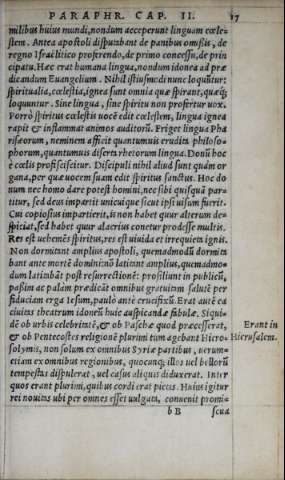 PARAPHR. CAP. II. 17
milibus huius mundi, nondum acceperunt linguam cœle=
stem. Antea apostoli disputabant de panibus omissis, de
regno Israëlitico proferendo, de primo concessu, de prin
cipatu. Hæc erat humana lingua, nondum idonea ad præ
dicandum Euangelium. Nihil istiusmodi nunc loquũtur:
spiritualia, cœlestia, ignea sunt omnia quæ spirant, quæq́;
loquuntur. Sine lingua, sine spiritu non profertur uox.
Porrò spiritus cœlestis uocẽ edit cœlestem, lingua ignea
rapit & inflammat animos auditorũ. Friget lingua Pha
risæorum, neminem afficit quantumuis erudita philoso=
phorum, quantumuis diserta rhetorum lingua. Donũ hoc
è cœlis proficiscitur. Discipuli nihil aliud sunt quàm or
gana, per quæ uocem suam edit spiritus sanctus. Hoc do
num nec homo dare potest homini, nec sibi quisquã par=
titur, sed deus impartit unicuique sicut ipsi uisum fuerit.
Cui copiosius impartierit, is non habet quur alterum de=
spiciat, sed habet quur alacrius conetur prodesse multis.
Res est uehemẽs spiritus, res est uiuida et irrequieta ignis.
Non dormitant amplius apostoli, quemadmodũ dormita
bant ante mortẽ domini: nõ latitant amplius, quemadmo=
dum latitabãt post resurrectionẽ: prosiliunt in publicũ,
passim ac palàm prædicãt omnibus gratuitam salutẽ per
fiduciam erga Iesum, paulò antè crucifixũ. Erat autẽ ea
ciuitas theatrum idoneũ huic auspicandæ fabulæ. Siqui=
dẽ ob urbis celebritatẽ, & ob Paschæ quod præcesserat,
& ob Pentecostes religionẽ plurimi tum agebant Hiero=
solymis, non solum ex omnibus Syriæ partibus, uerum=
etiam ex omnibus regionibus, quocunq; illos uel bellorũ
tempestas dispulerat, uel casus aliquis diduxerat. Inter
quos erant plurimi, quibus cordi erat pietas. Huius igitur
rei nouitas ubi per omnes esset uulgata, conuenit promi=
b B scua
Erant in
Hierusalem.